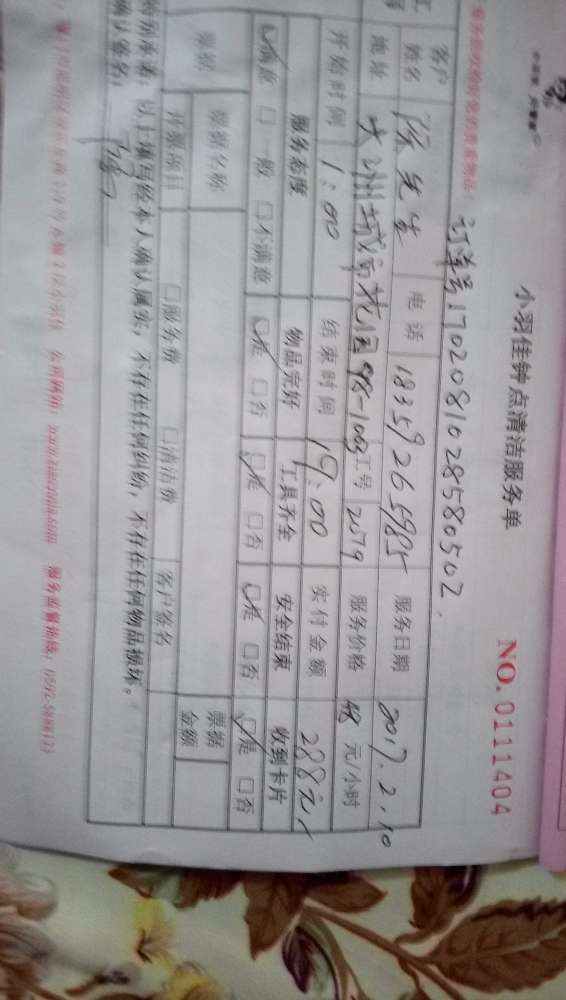 小羽佳钟点清洁服务单
NO. 0111404
订单号170208102858050Z.
客户姓名 陈先生 电话 18359265985 服务日期 2017.2.10
地址 大洲城市花园98-1003 工号 2079 服务价格 48 元/小时
开始时间 1:00 结束时间 19:00 实付金额 288元
服务态度 物品完好 工具齐全 安全结束 收到卡片
☑满意 □一般 □不满意 ☑是 □否 ☑是 □否 ☑是 □否 ☑是 □否
票据 票据名称 票据金额
开票项目 □服务费 □清洁费 客户签名
特别承诺：以上填写经本人确认属实，不存在任何纠纷，不存在任何物品损坏。
确认签名：
公司网站： 服务监督热线：0592-5888123